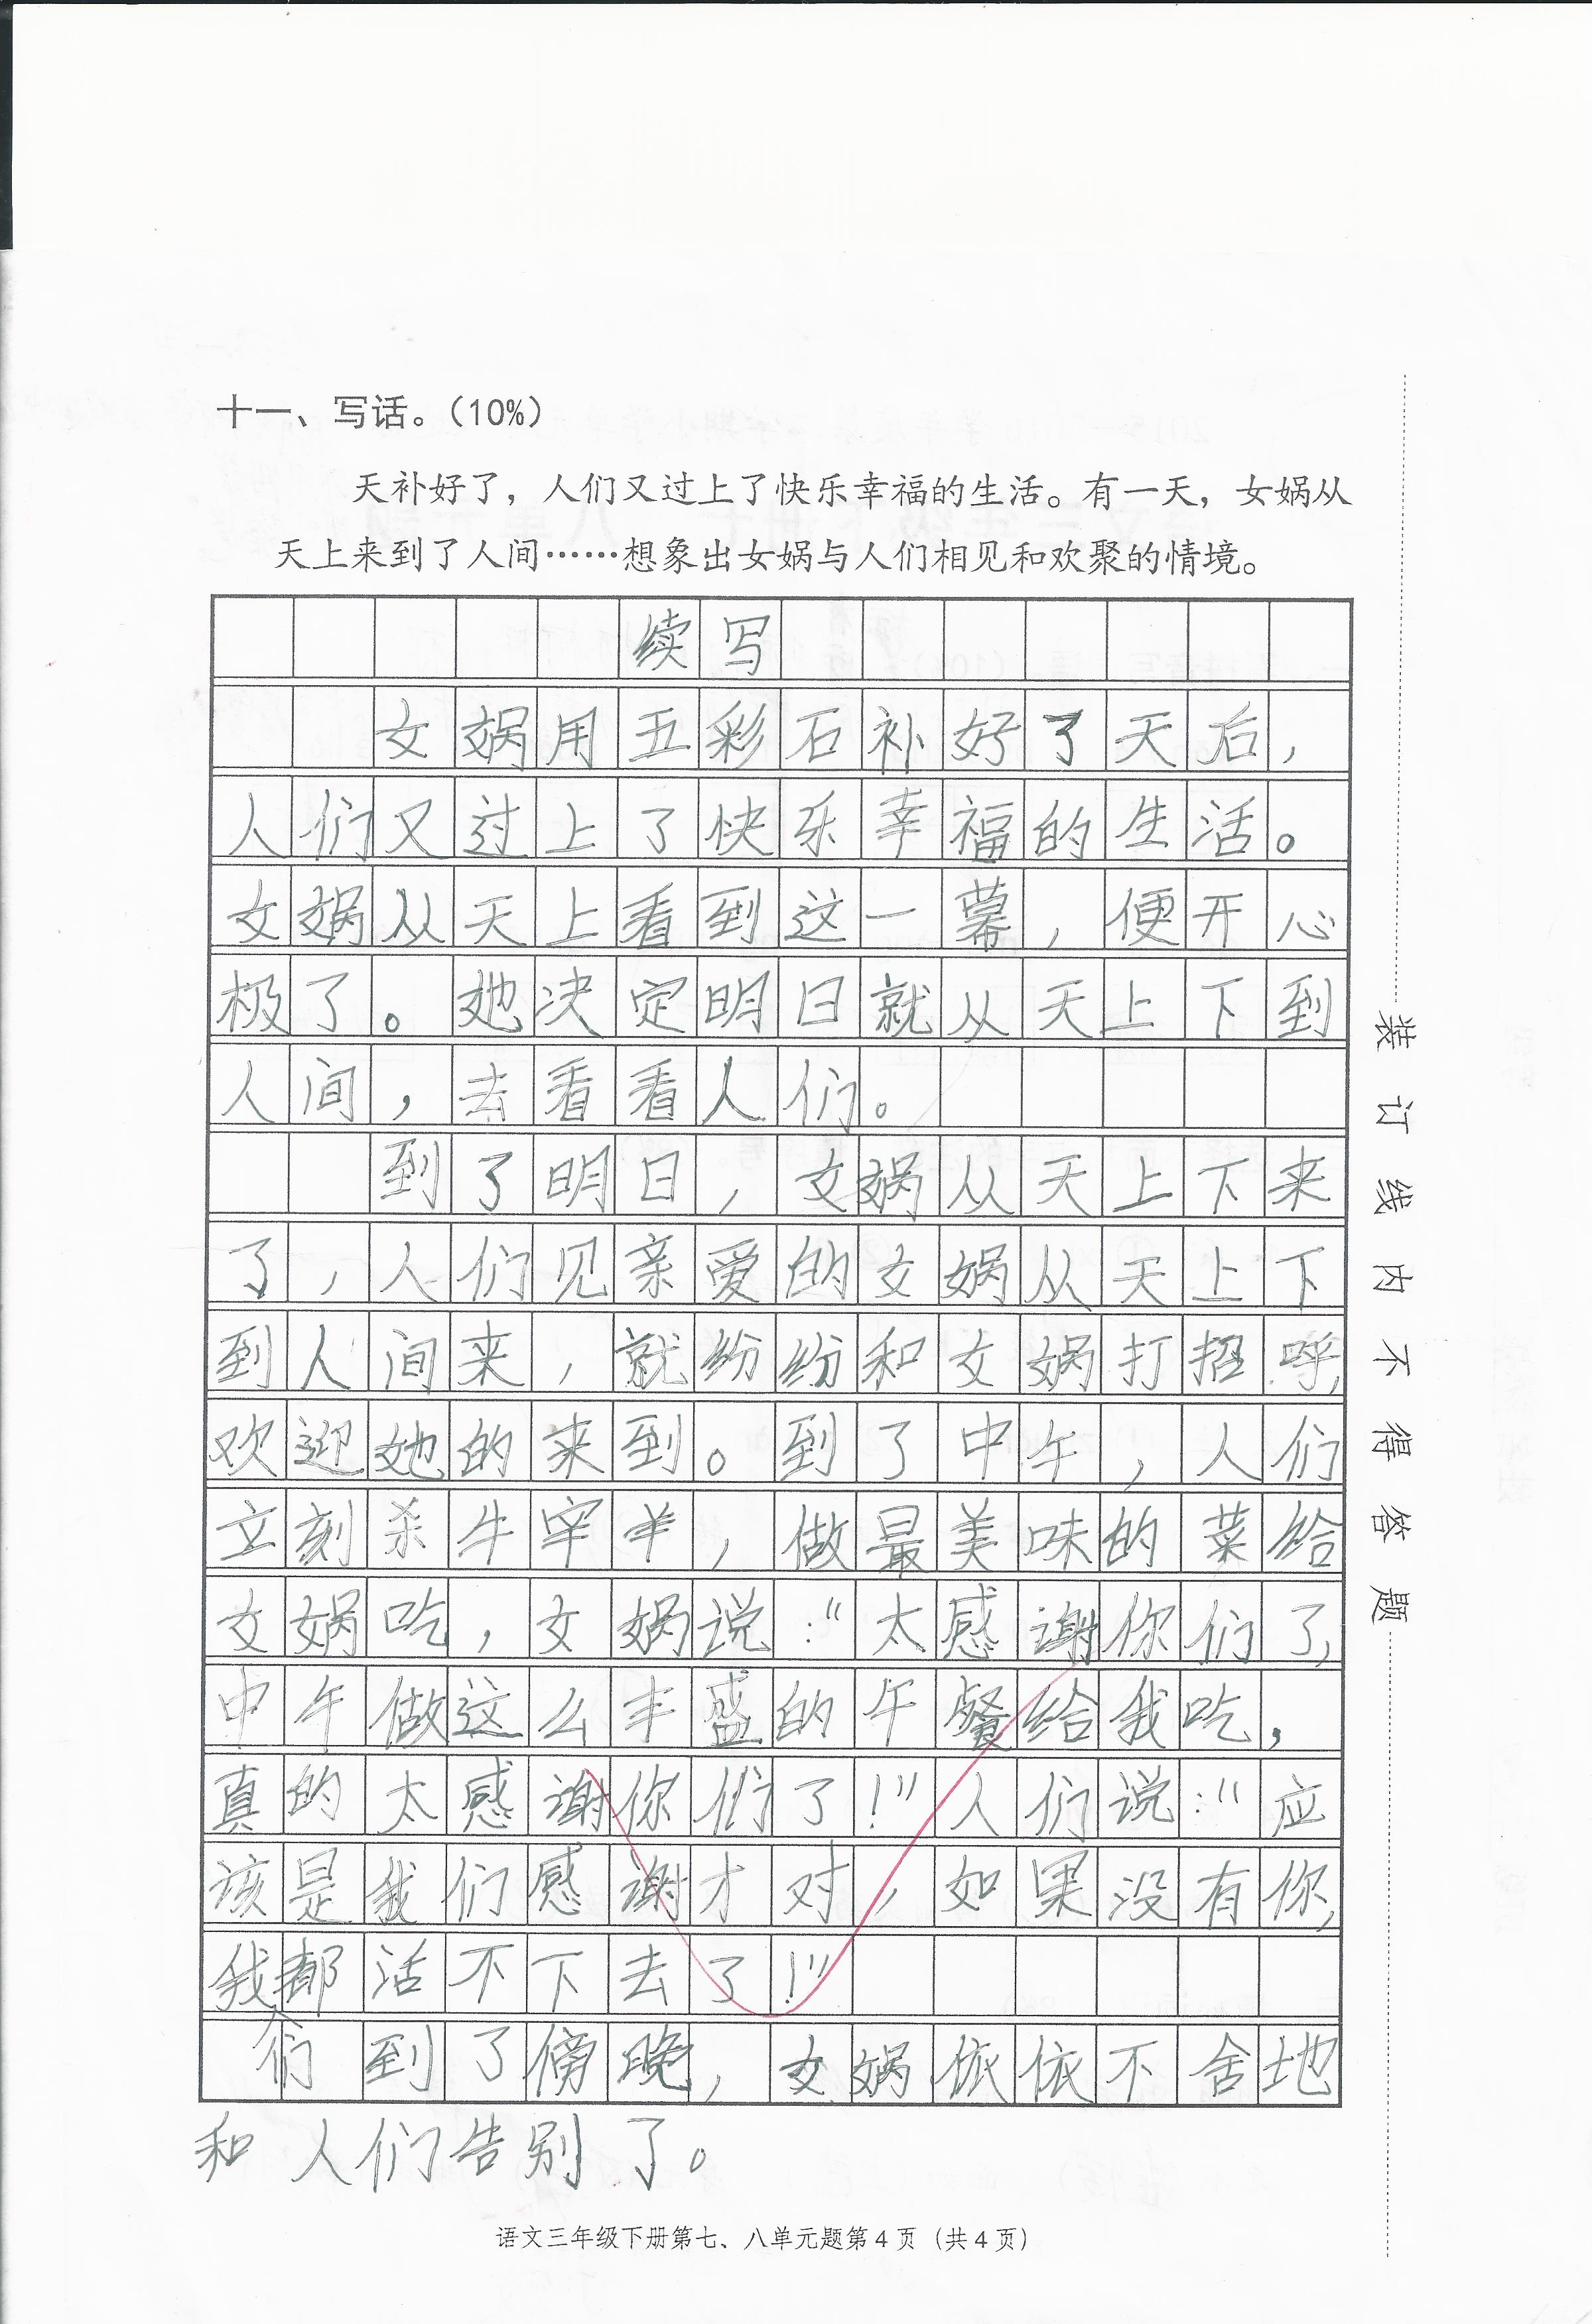 十一、写话。(10%)
天补好了，人们又过上了快乐幸福的生活。有一天，女娲从
天上来到了人间……想象出女娲与人们相见和欢聚的情境。
续写
女娲用五彩石补好了天后，
人们又过上了快乐幸福的生活。
女娲从天上看到这一幕，便开心
极了。她决定明日就从天上下到
人间，去看看人们。
到了明日，女娲从天上下来
了，人们见亲爱的女娲从天上下
到人间来，就纷纷和女娲打招呼，
欢迎她的来到。到了中午，人们
立刻杀牛宰羊，做最美味的菜给
女娲吃，女娲说：“太感谢你们了，
中午做这么丰盛的午餐给我吃，
真的太感谢你们了！”人们说：“应
该是我们感谢才对，如果没有你，
我们都活不下去了！”
到了傍晚，女娲依依不舍地
和人们告别了。
装订线内不得答题
语文三年级下册第七、八单元题第4页（共4页）